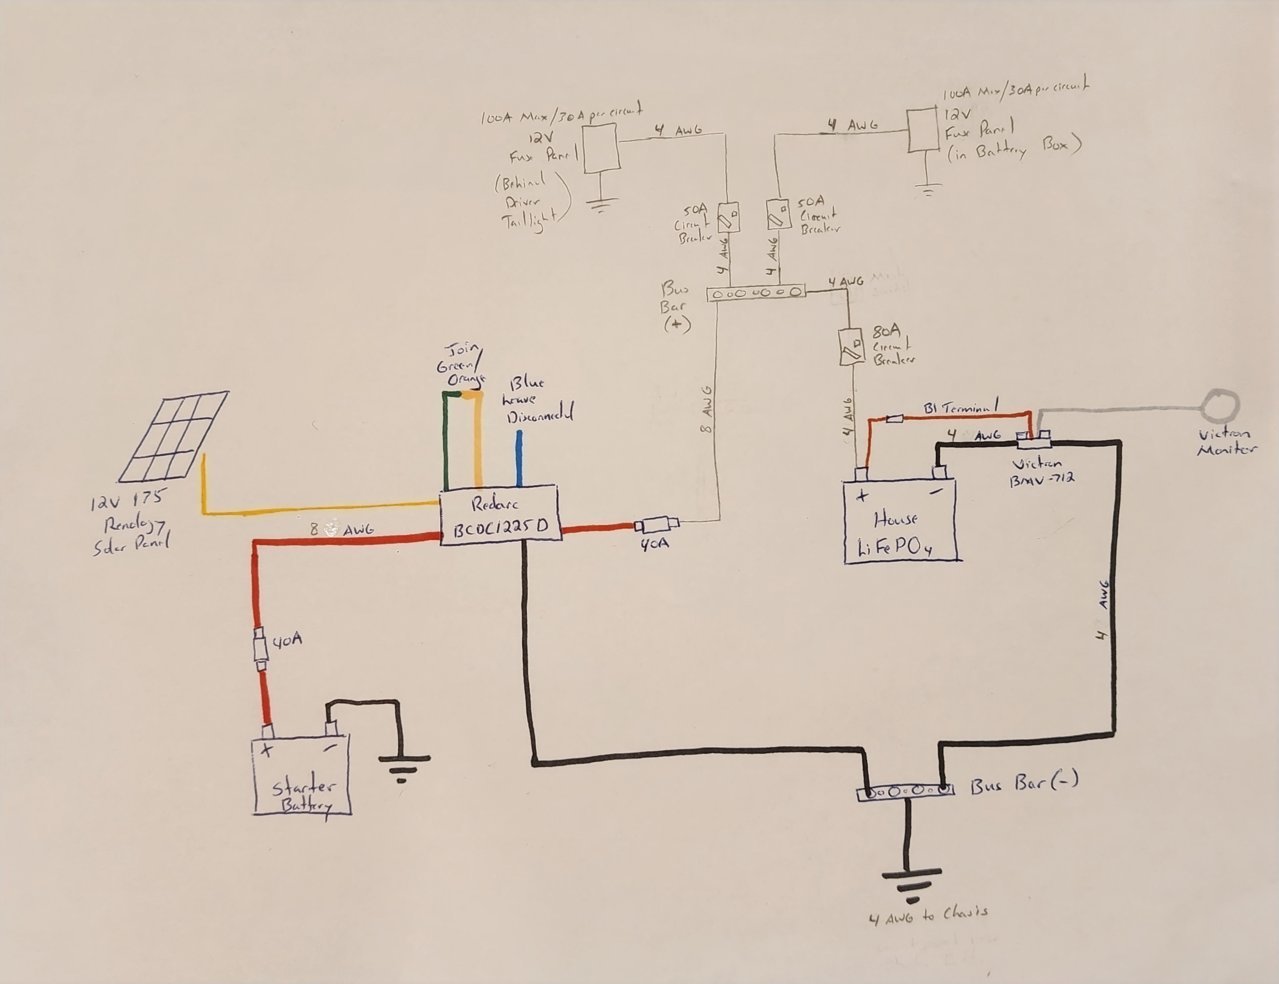 100A Max/30A per circuit
12V
Fuse Panel
(Behind
Driver
Taillight)
4 AWG
4 AWG
100A Max/30A per circuit
12V
Fuse Panel
(in Battery Box)
50A
Circuit
Breaker
50A
Circuit
Breaker
4 AWG
4 AWG
Bus
Bar
(+)
4 AWG
80A
Circuit
Breaker
8 AWG
4 AWG
Join
Green/
Orange
Blue
Leave
Disconnected
B1 Terminal
4 AWG
Victron
BMV-712
Victron
Moniter
12V 175
Renology
Solar Panel
8 AWG
Redarc
BCDC1225D
40A
+ -
House
LiFePO4
40A
4 AWG
+ -
Starter
Battery
Bus Bar (-)
4 AWG to Chasis